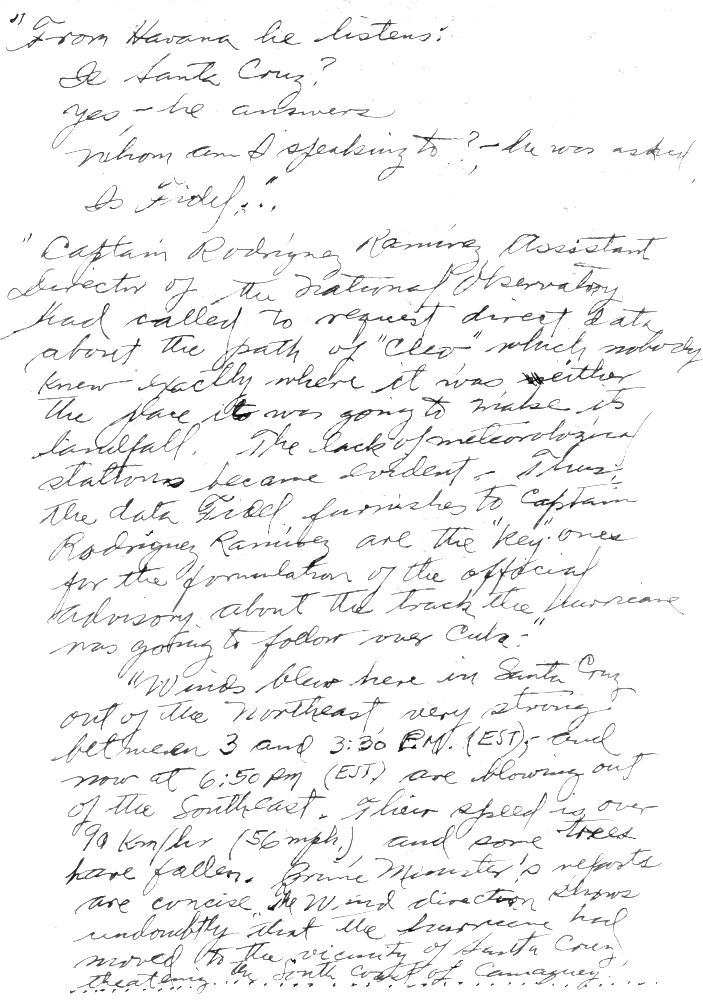 "From Havana he listens:
Is Santa Cruz?
yes - he answers
Whom am I speaking to? - he was asked
Is Fidel..."
"Captain Rodríguez Ramírez Assistant
Director of the National Observatory
had called to request direct data
about the path of "Cleo" which nobody
knew exactly where it was neither
the place it was going to make its
landfall. The lack of meteorological
stations became evident - Thus:
the data Fidel furnishes to Captain
Rodríguez Ramírez are the "key" ones
for the formulation of the official
advisory about the track the hurricane
was going to follow over Cuba -"
"Winds blew here in Santa Cruz
out of the Northeast very strong
between 3 and 3:30 P.M. (EST); and
now at 6:50 pm (EST) are blowing out
of the Southeast. Their speed is over
90 Km/hr (56 mph.) and some trees
have fallen. Prime Minister's reports
are concise the Wind direction shows
undoubtly that the hurricane had
moved to the vicinity of Santa Cruz,
theatening the South Coast of Camaguey